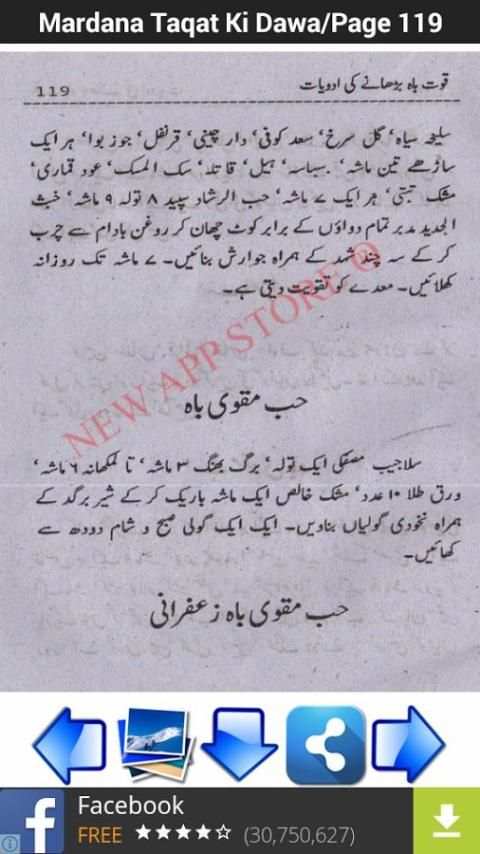 Mardana Taqat Ki Dawa/Page 119
قوت باہ بڑھانے کی ادویات
119
سلیخہ سیاہ‘ گل سرخ‘ سعد کوفی‘ دار چینی‘ قرنفل‘ جوز بوا‘ ہر ایک
ساڑھے تین ماشہ‘ بسباسہ‘ ہیل‘ قاقلہ‘ سک المسک‘ عود قماری‘
مشک تبتی‘ ہر ایک ۷ ماشہ‘ حب الرشاد سپید ۸ تولہ ۹ ماشہ‘ خبث
الحدید مدبر تمام دواؤں کے برابر کوٹ چھان کر روغن بادام سے چرب
کر کے سہ چند شہد کے ہمراہ جوارش بنائیں۔ ۷ ماشہ تک روزانہ
کھلائیں۔ معدے کو تقویت دیتی ہے۔
NEW APP STORE ®
حب مقوی باہ
سلاجیت مصفی ایک تولہ‘ برگ بھنگ ۳ ماشہ‘ تالمکھانہ ۶ ماشہ‘
ورق طلا ۱۰ عدد‘ مشک خالص ایک ماشہ باریک کر کے شیر برگد کے
ہمراہ نخودی گولیاں بنادیں۔ ایک ایک گولی صبح و شام دودھ سے
کھائیں۔
حب مقوی باہ زعفرانی
Facebook
FREE
(30,750,627)